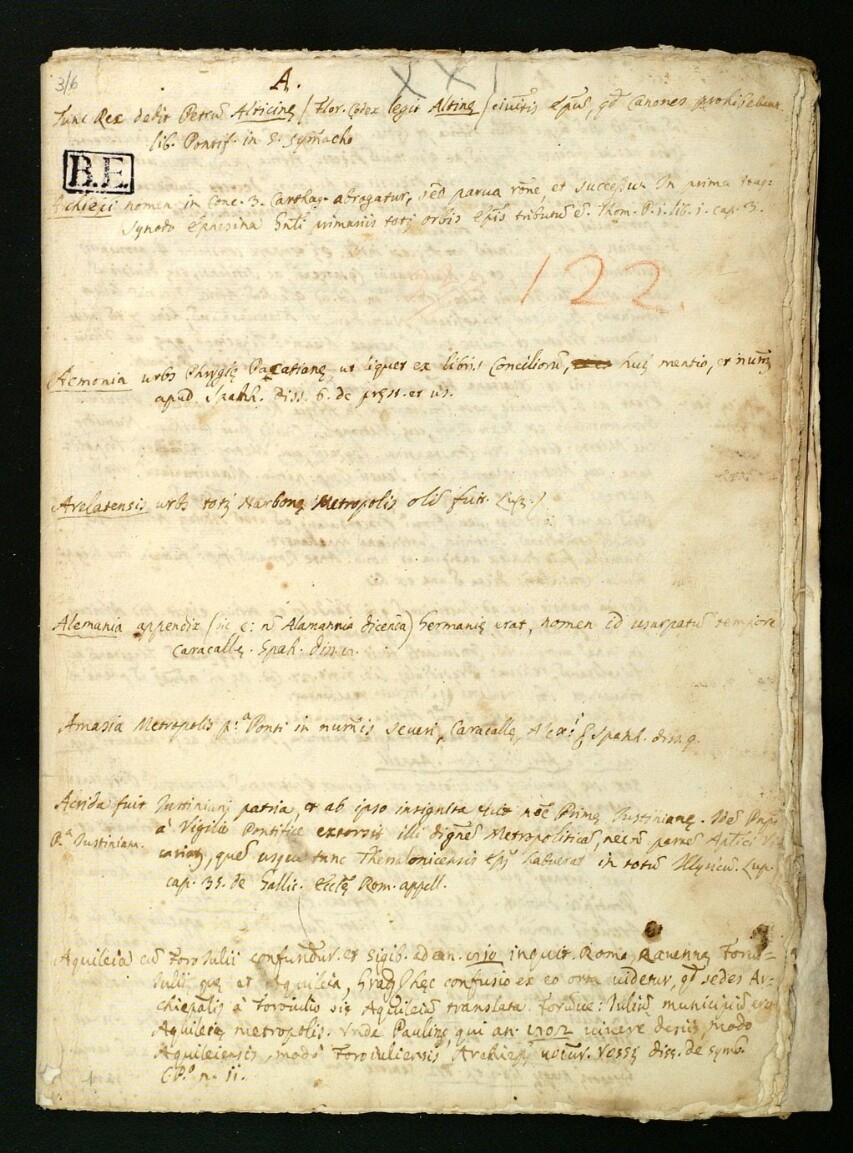 3/6
A.
XXI
Tunc Rex dedit Petrū Alticinę (Flor. Codex legit Altinę) civit̄is Ep̄us, qđ Canones prohibebant.
lib. Pontif. in S. Sym̄acho
B.E.
Achiep̄i nomen in Conc. 3. Carthag. abrogatur, sed parva rōne, et successu. In prima
Synodo Ephesina primariis totī orbis Ep̄is tributū ē. Thom. P. i. lib. i. cap. 3.
122.
Aemonia urbs Phrygię Pacatianę, ut liquet ex libris Conciliorū, huī mentio, et num̄i
apud Spanh. Diss. 6. de pręst. et us.
Arelatensis urbs totī Narbonę Metropolis olī fuit. Lup.
Alemania appendix (sic n̄ Alamannia dicenda) Germanię erat, nomen id usurpatū tempore
Caracallę. Spah.
Amasia Metropolis p.ª Ponti in num̄is Severi, Caracallę, Spanh. diss. 9.
Acrida fuit Justiniani patria, et ab ipso insignita nōe Primę Justinianę. Idē
P.ª Justinian. à Vigilio Pontifice extorsit illi dignē Metropoliticā, necnō
quē usque tunc Thessalonicensis Ep̄s habuerat in totū Illyricū. Lup.
cap. 35. de Gallic. Eccłę Rom. appell.
Aquileia cū Foro Julii confunditur. et Sigib. ad an. inquit. Roma, Ravenna, Forum
Julii quę et Aquileia, hęc confusio ex eo orta videtur, qđ sedes Ar-
chiep̄alis à Foroiulio sic Aquileiā translata. Julium municipiū
Aquileię metropolis. Unde Paulinę qui an. vivere desiit, modo
Aquileiensis, modo Foroiuliensis, Archiep̄s vocatur. Voss. diss. de symb.
CP.º n. ii.